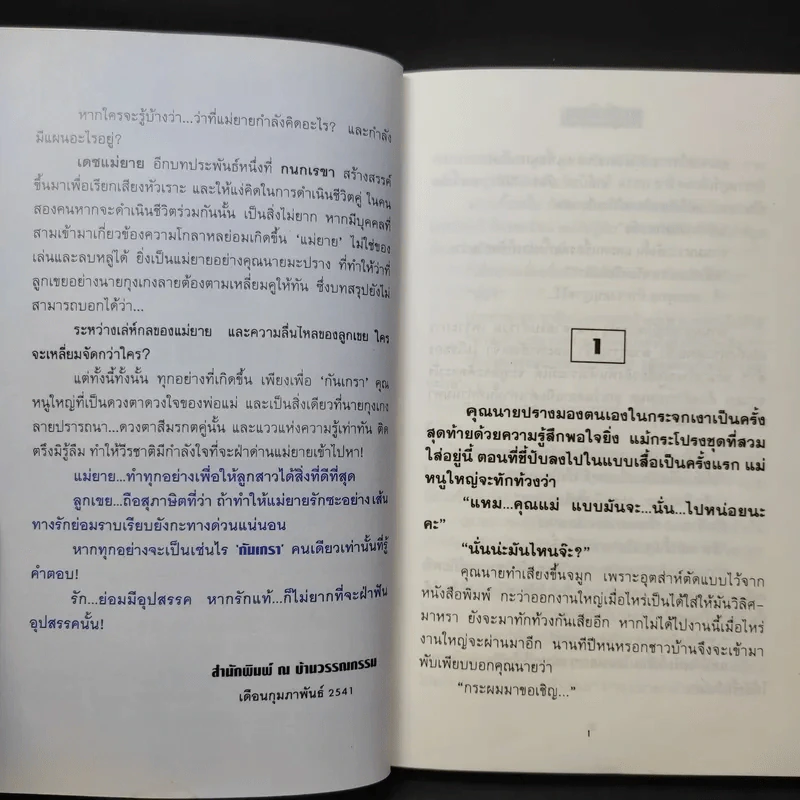 หากใครจะรู้บ้างว่า...ว่าที่แม่ยายกำลังคิดอะไร? และกำลัง
มีแผนอะไรอยู่?
เดชแม่ยาย อีกบทประพันธ์หนึ่งที่ กนกเรขา สร้างสรรค์
ขึ้นมาเพื่อเรียกเสียงหัวเราะ และให้แง่คิดในการดำเนินชีวิตคู่ ในคน
สองคนหากจะดำเนินชีวิตร่วมกันนั้น เป็นสิ่งไม่ยาก หากมีบุคคลที่
สามเข้ามาเกี่ยวข้องความโกลาหลย่อมเกิดขึ้น 'แม่ยาย' ไม่ใช่ของ
เล่นและลบหลู่ได้ ยิ่งเป็นแม่ยายอย่างคุณนายมะปราง ที่ทำให้ว่าที่
ลูกเขยอย่างนายกุงเกงลายต้องตามเหลี่ยมคูให้ทัน ซึ่งบทสรุปยังไม่
สามารถบอกได้ว่า...
ระหว่างเล่ห์กลของแม่ยาย และความลื่นไหลของลูกเขย ใคร
จะเหลี่ยมจัดกว่าใคร?
แต่ทั้งนี้ทั้งนั้น ทุกอย่างที่เกิดขึ้น เพียงเพื่อ 'กันเกรา' คุณ
หนูใหญ่ที่เป็นดวงตาดวงใจของพ่อแม่ และเป็นสิ่งเดียวที่นายกุงเกง
ลายปรารถนา...ดวงตาสีมรกตคู่นั้น และแววแห่งความรู้เท่าทัน ติด
ตรึงมิรู้ลืม ทำให้วีรชาติมีกำลังใจที่จะฝ่าด่านแม่ยายเข้าไปหา!
แม่ยาย...ทำทุกอย่างเพื่อให้ลูกสาวได้สิ่งที่ดีที่สุด
ลูกเขย...ถือสุภาษิตที่ว่า ถ้าทำให้แม่ยายรักซะอย่าง เส้น
ทางรักย่อมราบเรียบยังกะทางด่วนแน่นอน
หากทุกอย่างจะเป็นเช่นไร 'กันเกรา' คนเดียวเท่านั้นที่รู้
คำตอบ!
รัก...ย่อมมีอุปสรรค หากรักแท้...ก็ไม่ยากที่จะฝ่าฟัน
อุปสรรคนั้น!
สำนักพิมพ์ ณ บ้านวรรณกรรม
เดือนกุมภาพันธ์ 2541
1
คุณนายปรางมองตนเองในกระจกเงาเป็นครั้ง
สุดท้ายด้วยความรู้สึกพอใจยิ่ง แม้กระโปรงชุดที่สวม
ใส่อยู่นี้ ตอนที่ชี้ปั๊บลงไปในแบบเสื้อเป็นครั้งแรก แม่
หนูใหญ่จะทักท้วงว่า
"แหม...คุณแม่ แบบมันจะ...นั่น...ไปหน่อยนะ
คะ"
"นั่นน่ะมันไหนจ๊ะ?"
คุณนายทำเสียงขึ้นจมูก เพราะอุตส่าห์ตัดแบบไว้จาก
หนังสือพิมพ์ กะว่าออกงานใหญ่เมื่อไหร่เป็นได้ใส่ให้มันวิลิศ-
มาหรา ยังจะมาทักท้วงกันเสียอีก หากไม่ได้ไปงานนี้เมื่อไหร่
งานใหญ่จะผ่านมาอีก นานทีปีหนหรอกชาวบ้านจึงจะเข้ามา
พับเพียบบอกคุณนายว่า
"กระผมมาขอเชิญ..."
1